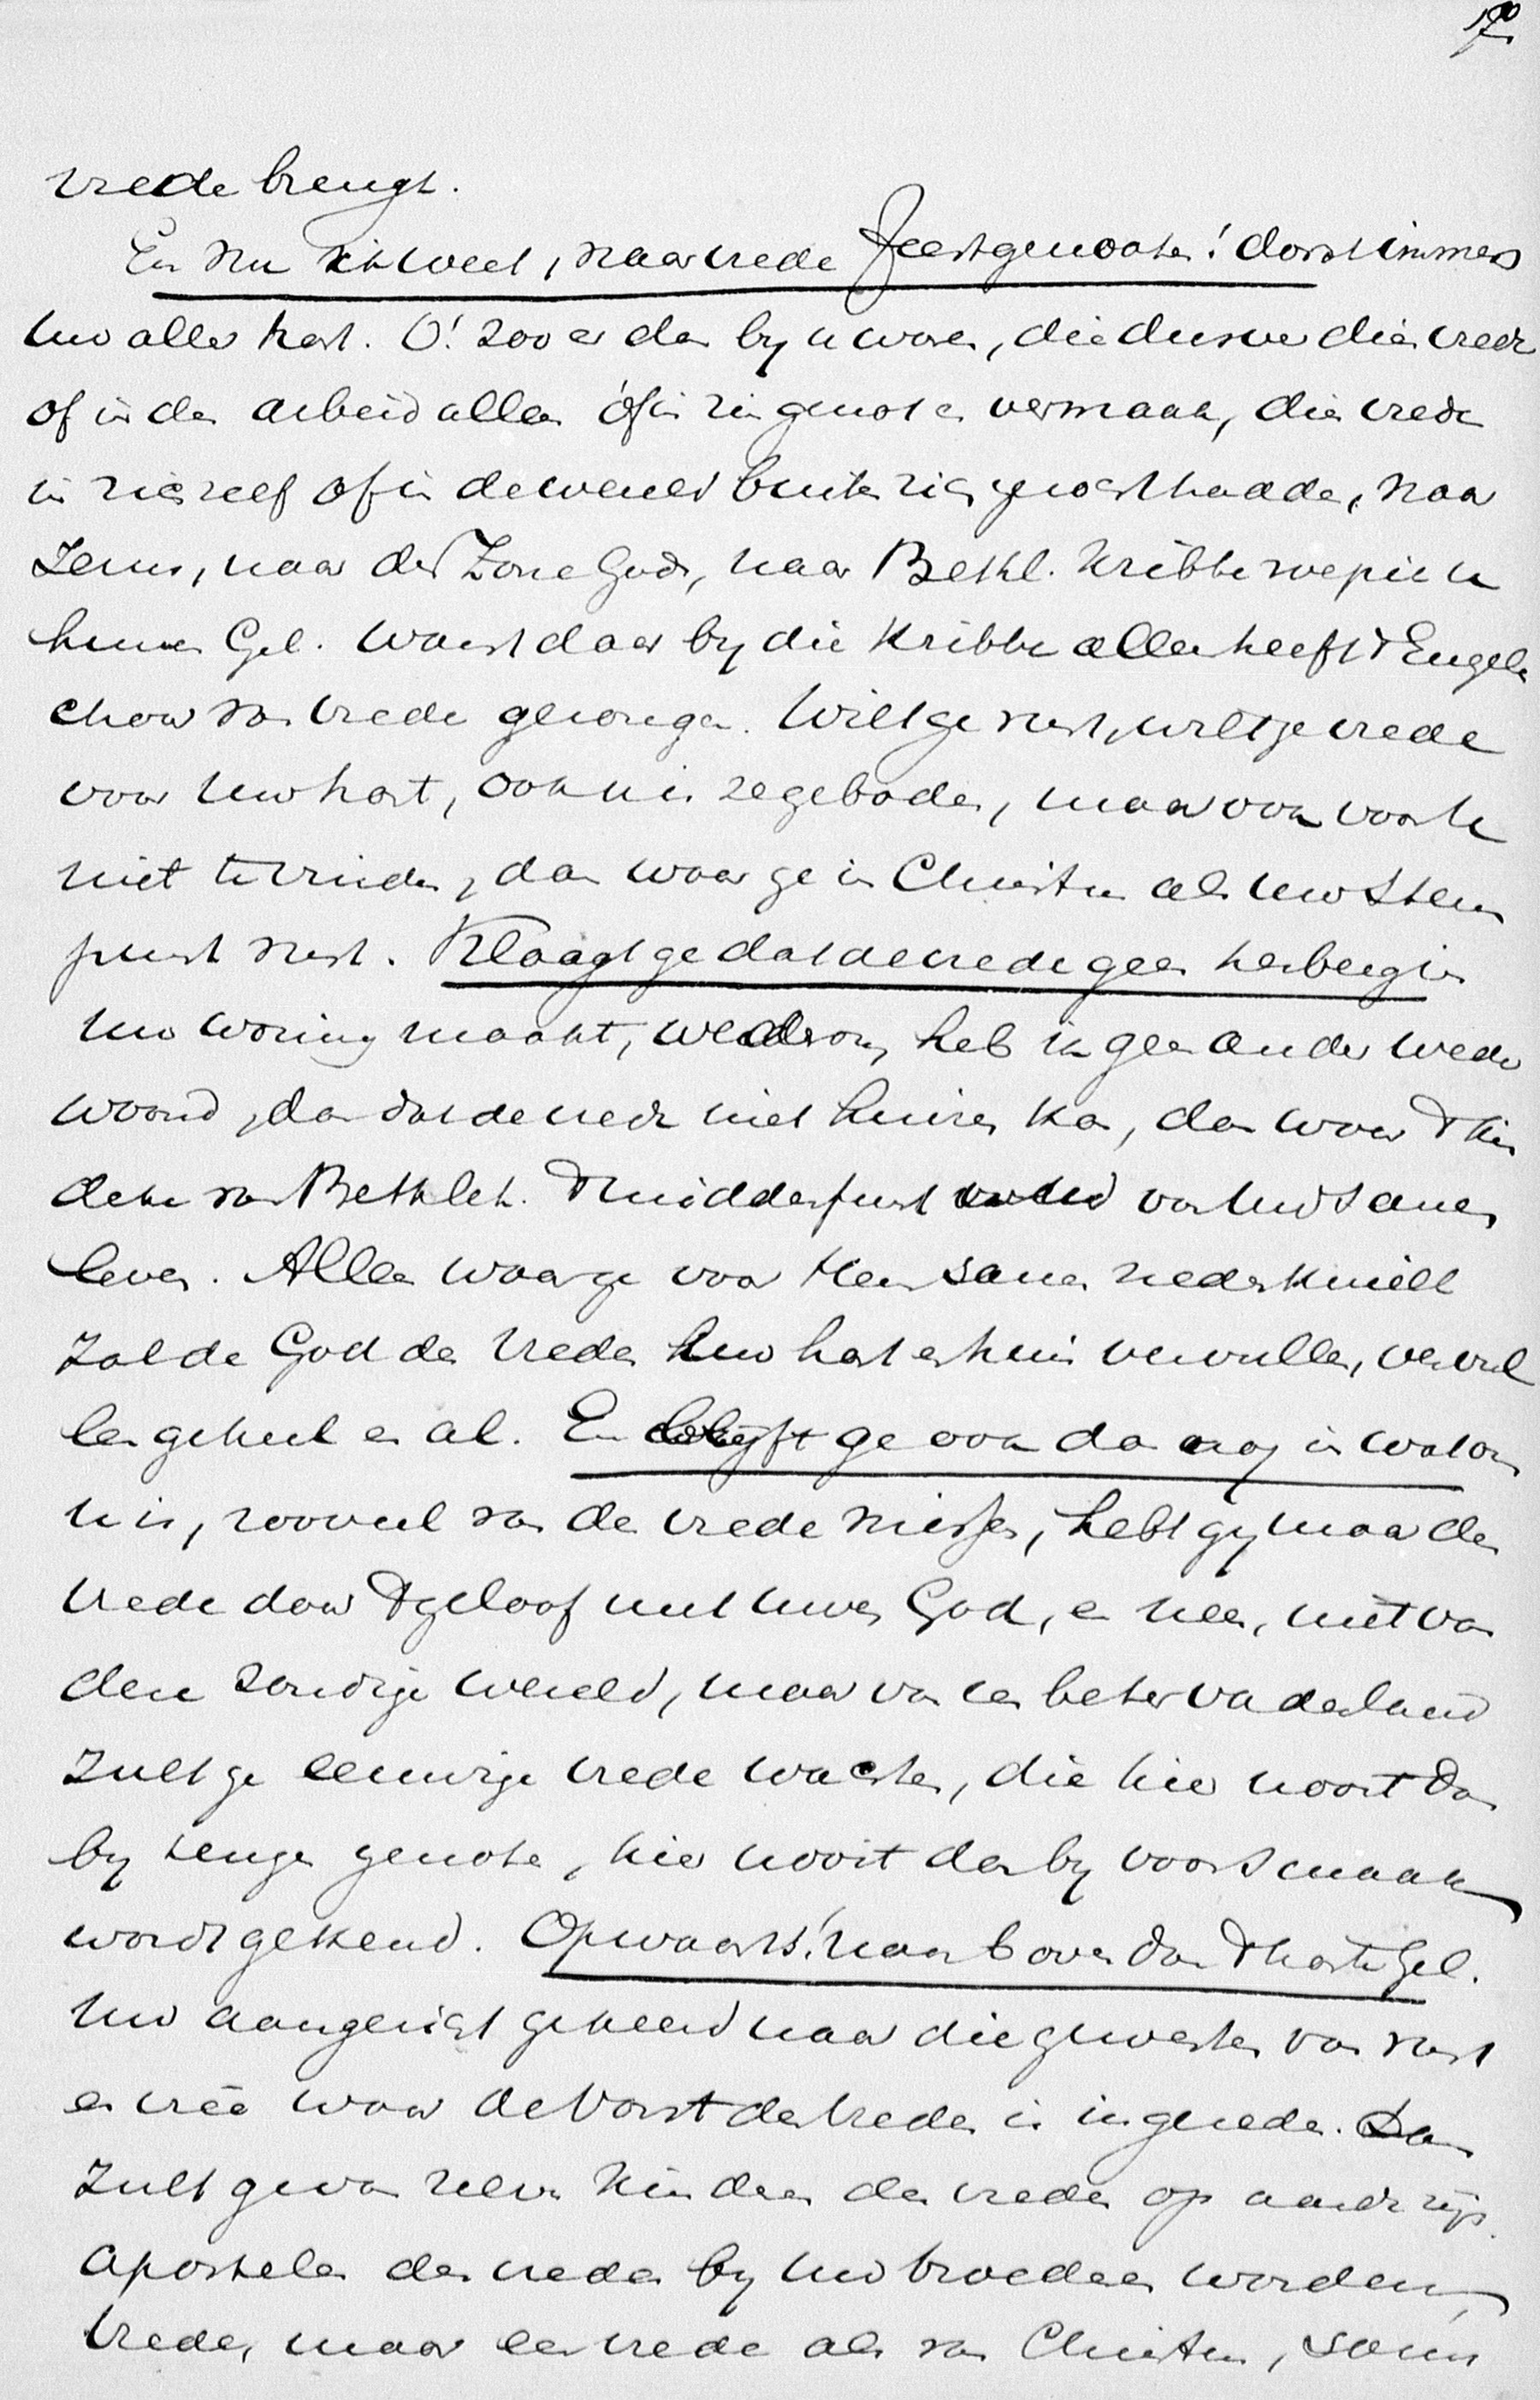 vrede brengt.
En nu ik weet, naar vrede Feestgenooten! dorst immers
Uw aller hart. O! zoo er dan by u waren, die dusver dien vrede
of in den arbeid alleen óf in zingenot en vermaak, dien vrede
in zich zelf of in de wereld buiten zich gezocht hadden, naar
Jezus, naar den Zone Gods, naar Bethl. kribbe roep ik u
henen Gel. Want daar by die kribbe alleen heeft 't Engelen
choor van vrede gezongen. Wilt ge rust, wilt ge vrede
voor Uw hart, ook u is ze geboden, maar ook voor u
niet te vinden, dan waar ge in Christus als Uw steun
punt rust. Klaagt ge dat de vrede geen herberg in
Uw woning maakt, wederom heb ik geen ander weder
woord, dan dat de vrede niet huizen kan, dan waar 't kin
deke van Bethleh. 't middenpunt van Uw samen
leven. Alleen waar ge voor Hem samen nederknielt
zal de God des vredes Uw hart en huis vervullen, vervul
len geheel en al. En blijft ge ook dan nog in wat om
u is, zooveel van de vrede missen, hebt gy maar den
vrede door 't geloof met uwen God, o neen, niet van
deze zondige wereld, maar van een beter vaderland
zult ge eeuwige vrede wachten, die hier nooit dan
by teuge genoten, hier nooit dan by voorsmaak
wordt gekend. Opwaarts! naar boven dan 't hart Gel.
Uw aangezicht gekeerd naar die gewesten van rust
en vreê waar de Vorst des vredes is ingegaan. Dan
zult ge van zelve kinderen des vredes op aarde zijn
apostelen des vredes by Uw broederen worden,
vrede, maar een vrede als van Christus, samen